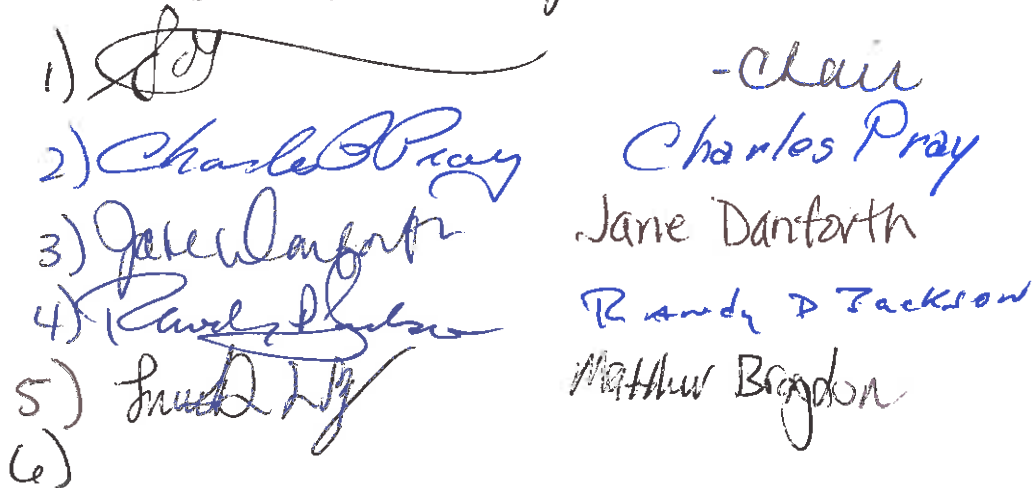 1) - Chair
2) Charles B Pray Charles Pray
3) Jane Danforth Jane Danforth
4) Randy D Jackson Randy D Jackson
5) Matthew Bragdon
6)